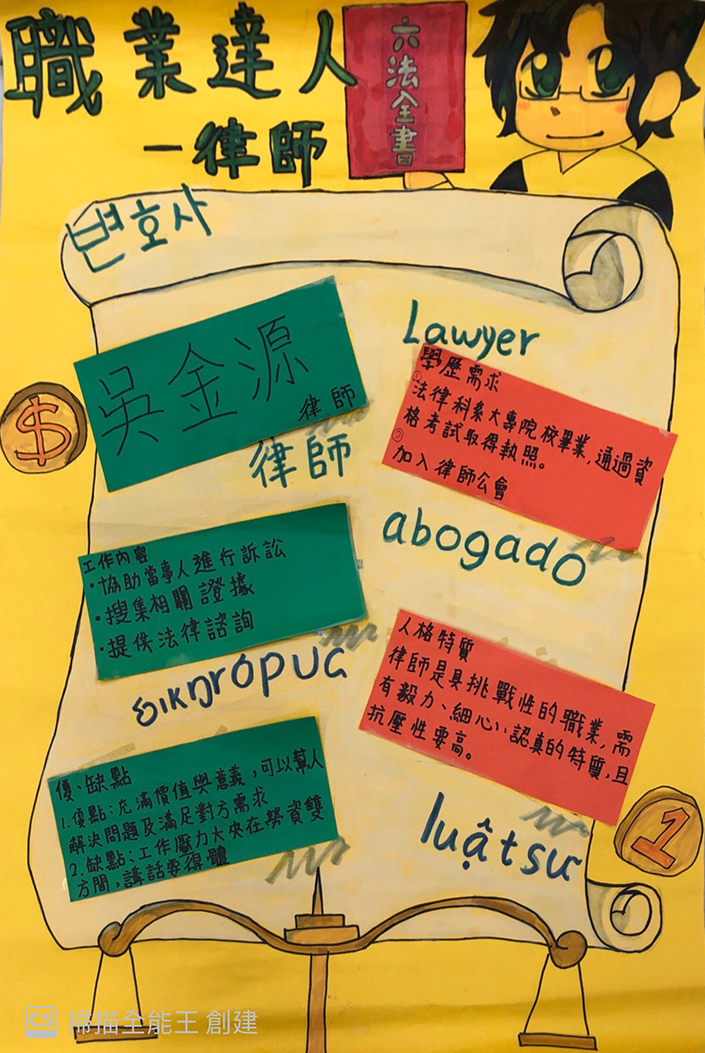 職業達人
六法全書
－律師
변호사
吳金源
律師
Lawyer
學歷需求
①法律科系大專院校畢業,通過資
格考試取得執照。
②加入律師公會
律師
$
abogado
工作內容
•協助當事人進行訴訟
•搜集相關證據
•提供法律諮詢
人格特質
律師是具挑戰性的職業,需
有毅力、細心、認真的特質,且
抗壓性要高。
δικηγόρος
優、缺點
1.優點:充滿價值與意義,可以幫人
解決問題及滿足對方需求
2.缺點:工作壓力大夾在勞資雙
方間,講話要得體
luật sư
1
CS 掃描全能王 創建